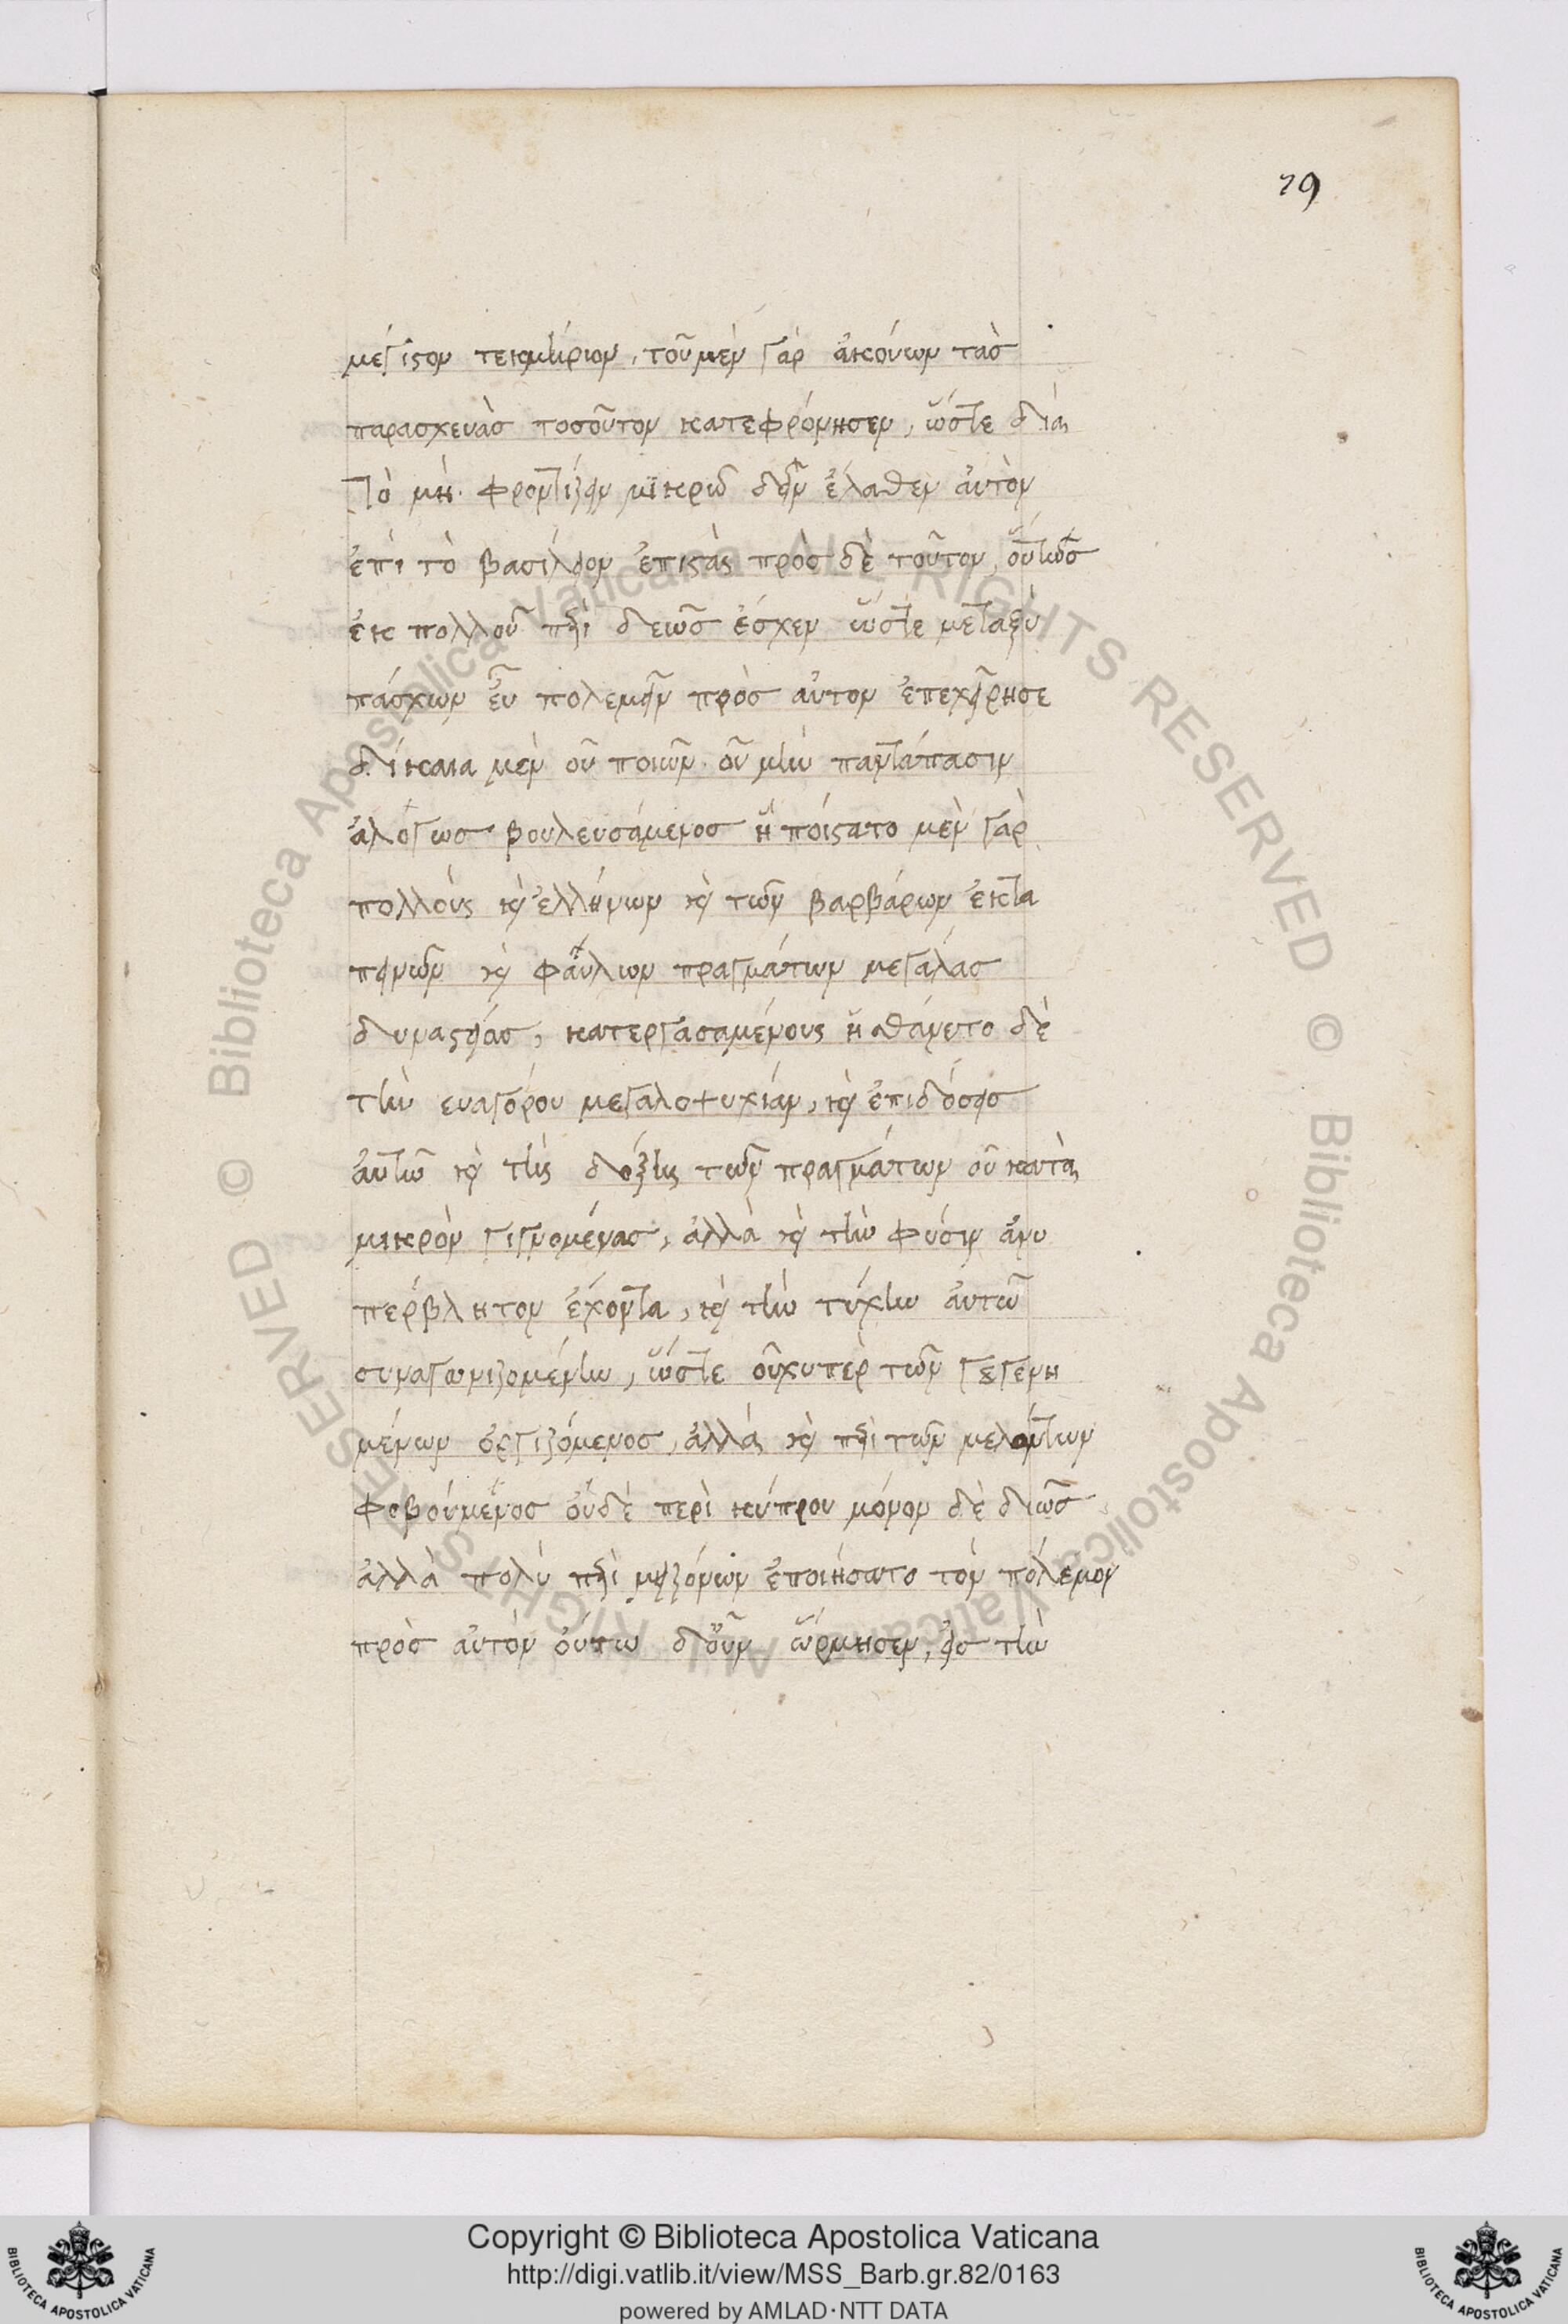 79
μέγιστον τεκμήριον, τοῦ μὲν γὰρ ἀκούων τὰσ
παρασκευὰσ τοσοῦτον κατεφρόνησεν, ὥστε διὰ
τὸ μὴ. φροντίζειν μϊκρῶ δεῖν ἔλαθεν ἀυτὸν
ἐπὶ τὸ βασίλειον ἐπιστὰς πρὸσ δὲ τοῦτον, οὕτωσ
ἐκ πολλοῦ περὶ δεωσ ἔσχεν ὥστε μεταξὺ
πάσχων ἔυ πολεμεῖν πρὸσ αὐτον ἐπεχείρησε
δίκαια μὲν οὐ ποιῶν. οὐ μὴν παντάπασιν
ἀλόγωσ βουλευσάμενοσ ἠπόιστατο μὲν γὰρ
πολλοὺς καὶ ἑλλήνων καὶ τῶν βαρβάρων ἐκ τα
πεινῶν καὶ φάυλων πραγμάτων μεγάλασ
δυναστείασ, κατεργασαμένους ἠσθάνετο δὲ
τὴν ευαγόρου μεγαλοψυχίαν, καὶ ἐπιδόσεισ
ἀυτῶ καὶ τῆς δόξης τῶν πραγμάτων οὐ κατὰ
μικρὸν γιγνομένασ, ἀλλὰ καὶ τὴν φύσιν ἀνυ
πέρβλητον ἔχοντα, καὶ τὴν τύχην ἀυτῶ
συναγωνιζομένην, ὥστε οὐχυπὲρ τῶν γεγενη
μένων ὀργιζόμενοσ, ἀλλὰ καὶ περὶ τῶν μελόντων
φοβούμενοσ οὐδὲ περὶ κύπρου μόνον δὲ διωσ
ἀλλὰ πολὺ περὶ μειζόνων ἐποιήσατο τὸν πόλεμον
πρὸσ αὐτὸν ὀύτω δ' οὖν ὥρμησεν, εἰσ τὴν
Copyright © Biblioteca Apostolica Vaticana
http://digi.vatlib.it/view/MSS_Barb.gr.82/0163
powered by AMLAD·NTT DATA
BIBLIOTECA APOSTOLICA VATICANA
BIBLIOTECA APOSTOLICA VATICANA
© Biblioteca Apostolica Vaticana ALL RIGHTS RESERVED © Biblioteca Apostolica Vaticana ALL RIGHTS RESERVED